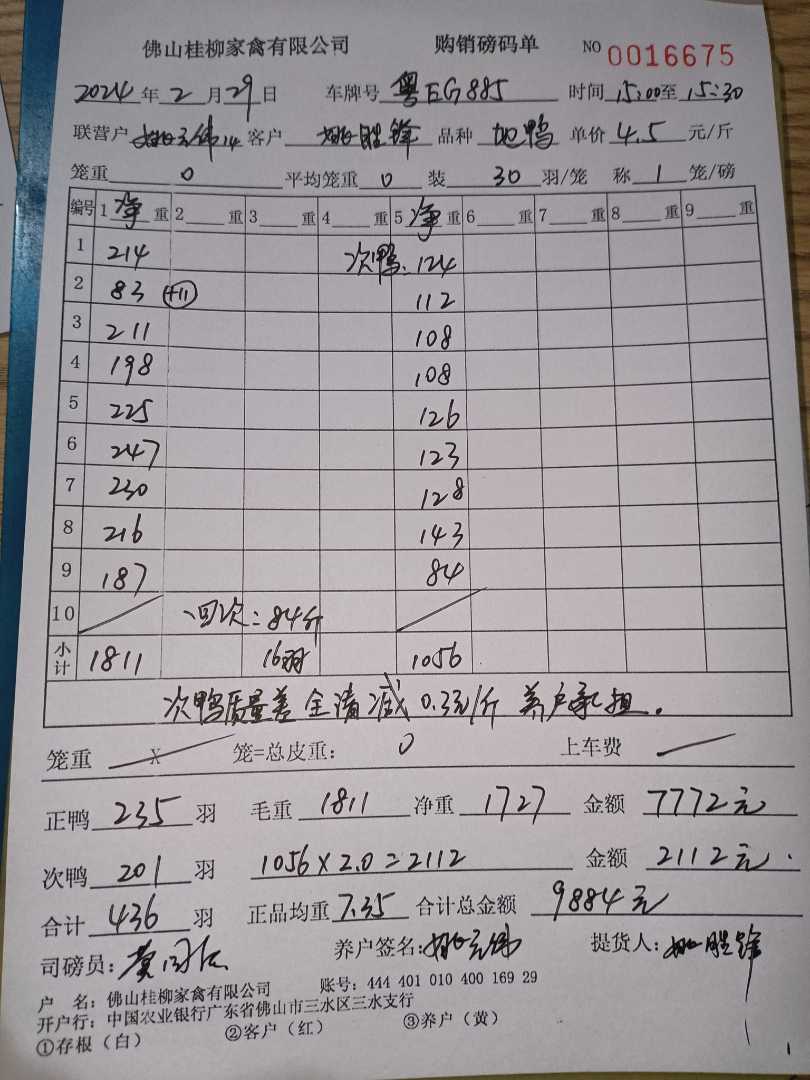 佛山桂柳家禽有限公司 购销磅码单 NO 0016675
2024 年 2 月 29 日 车牌号 粤EG885 时间 15:00 至 15:30
联营户 姚云伟14 客户 姚胜锋 品种 地鸭 单价 4.5 元/斤
笼重 0 平均笼重 0 装 30 羽/笼 称 1 笼/磅
编号 1 净 重 2 重 3 重 4 重 5 净 重 6 重 7 重 8 重 9 重
1 214 次鸭: 124
2 83 +11 112
3 211 108
4 198 108
5 225 126
6 247 123
7 230 128
8 216 143
9 187 84
10 回次: 84斤
小计 1811 16羽 1056
次鸭质量差 全清减0.3元/斤 养户承担。
笼重 X 笼=总皮重: 0 上车费
正鸭 235 羽 毛重 1811 净重 1727 金额 7772元
次鸭 201 羽 1056×2.0=2112 金额 2112元.
合计 436 羽 正品均重 7.35 合计总金额 9884元
司磅员: 养户签名: 姚云伟 提货人: 姚胜锋
户 名: 佛山桂柳家禽有限公司 账号: 444 401 010 400 169 29
开户行: 中国农业银行广东省佛山市三水区三水支行
①存根(白) ②客户(红) ③养户(黄)